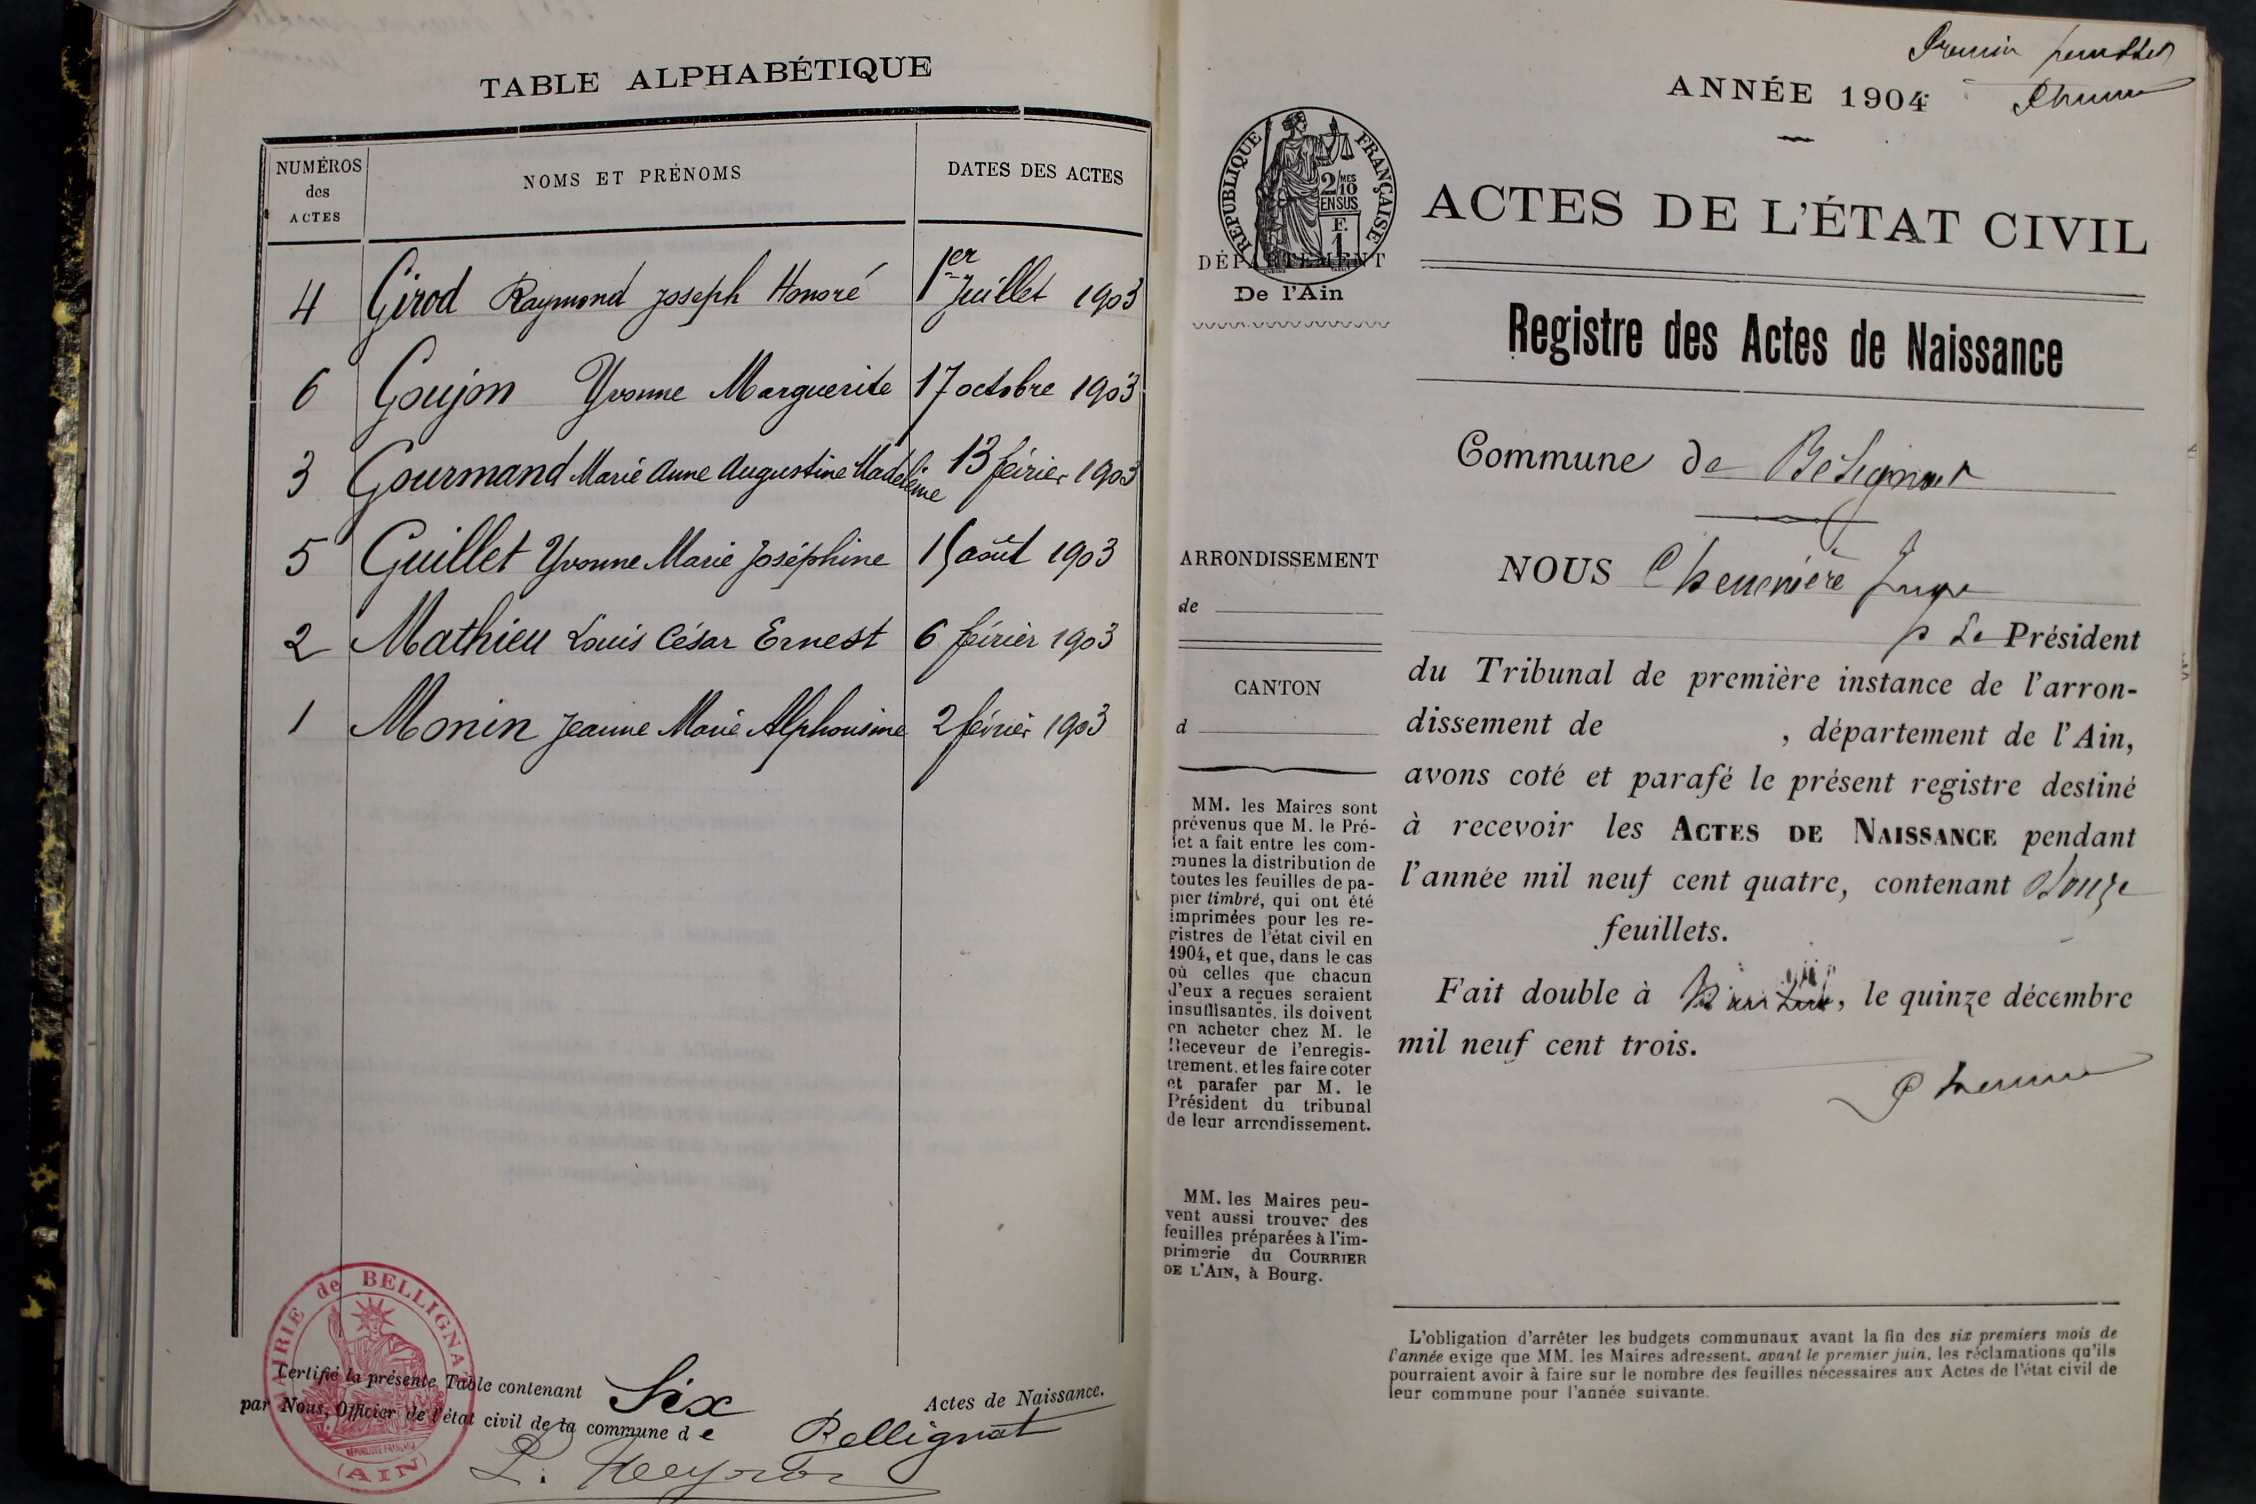 TABLE ALPHABÉTIQUE
NUMÉROS des ACTES
NOMS ET PRÉNOMS
DATES DES ACTES
4 Girod Raymond Joseph Honoré 1er Juillet 1903
6 Goujon Yvonne Marguerite 17 octobre 1903
3 Gourmand Marie Anne Augustine Madeleine 13 février 1903
5 Guillet Yvonne Marie Joséphine 15 août 1903
2 Mathieu Louis César Ernest 6 février 1903
1 Monin Jeanne Marie Alphonsine 2 février 1903
MAIRIE de BELLIGNAT
RÉPUBLIQUE FRANÇAISE
(AIN)
Certifié la présente Table contenant Six Actes de Naissance.
par Nous, Officier de l'état civil de la commune de Bellignat
Premier
ANNÉE 1904
RÉPUBLIQUE FRANÇAISE
2/10 MES
EN SUS
F.
1
ACTES DE L'ÉTAT CIVIL
DÉPARTEMENT
De l'Ain
Registre des Actes de Naissance
Commune de Bélignat
ARRONDISSEMENT
de
CANTON
d
MM. les Maires sont
prévenus que M. le Pré-
fet a fait entre les com-
munes la distribution de
toutes les feuilles de pa-
pier timbré, qui ont été
imprimées pour les re-
gistres de l'état civil en
1904, et que, dans le cas
où celles que chacun
d'eux a reçues seraient
insuffisantes, ils doivent
en acheter chez M. le
Receveur de l'enregis-
trement, et les faire coter
et parafer par M. le
Président du tribunal
de leur arrondissement.
MM. les Maires peu-
vent aussi trouver des
feuilles préparées à l'im-
primerie du COURRIER
DE L'AIN, à Bourg.
NOUS Chenevière Juge
p Le Président
du Tribunal de première instance de l'arron-
dissement de , département de l'Ain,
avons coté et parafé le présent registre destiné
à recevoir les ACTES DE NAISSANCE pendant
l'année mil neuf cent quatre, contenant douze
feuillets.
Fait double à , le quinze décembre
mil neuf cent trois.
L'obligation d'arrêter les budgets communaux avant la fin des six premiers mois de
l'année exige que MM. les Maires adressent, avant le premier juin, les réclamations qu'ils
pourraient avoir à faire sur le nombre des feuilles nécessaires aux Actes de l'état civil de
leur commune pour l'année suivante.